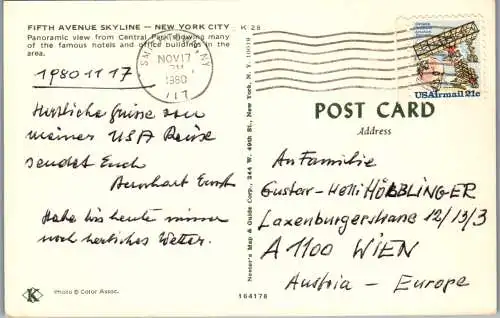 FIFTH AVENUE SKYLINE — NEW YORK CITY K-28
Panoramic view from Central Park showing many
of the famous hotels and office buildings in the
area.
NOV 17
PM
1980
117
NY
USAirmail 21c
1980 11 17
Herzliche Grüsse von
meiner USA Reise
sendet Euch
Ernst
Habe bis heute immer
noch herrliches Wetter.
POST CARD
Address
An Familie
Gustav-Helli HÖBLINGER
Laxenburgerstrasse 12/13/3
A 1100 WIEN
Austria - Europe
Nester's Map & Guide Corp., 244 W. 49th St., N.Y. 10019
K
Photo © Color Assoc.
164178